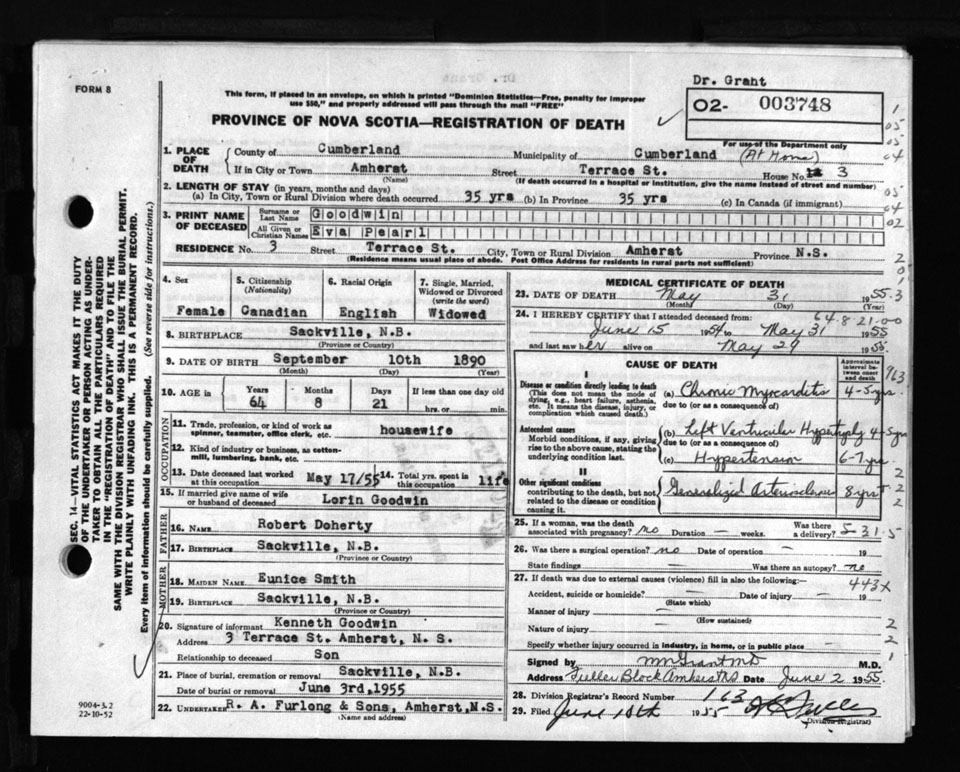 Dr. Grant
FORM 8
This form, if placed in an envelope, on which is printed "Dominion Statistics—Free, penalty for improper
use $50," and properly addressed will pass through the mail "FREE"
O2- 003748
For use of the Department only
PROVINCE OF NOVA SCOTIA—REGISTRATION OF DEATH
1. PLACE OF DEATH
County of Cumberland Municipality of Cumberland (At Home)
If in City or Town Amherst Street Terrace St. House No. 3
(Name) (If death occurred in a hospital or institution, give the name instead of street and number)
2. LENGTH OF STAY (in years, months and days)
(a) In City, Town or Rural Division where death occurred 35 yrs (b) In Province 35 yrs (c) In Canada (if immigrant)
3. PRINT NAME OF DECEASED
Surname or Last Name Goodwin
All Given or Christian Names Eva Pearl
RESIDENCE No. 3 Street Terrace St. City, Town or Rural Division Amherst Province N.S.
(Residence means usual place of abode. Post Office Address for residents in rural parts not sufficient)
4. Sex Female
5. Citizenship (Nationality) Canadian
6. Racial Origin English
7. Single, Married, Widowed or Divorced (write the word) Widowed
8. BIRTHPLACE Sackville, N.B.
(Province or Country)
9. DATE OF BIRTH September 10th 1890
(Month) (Day) (Year)
10. AGE in Years 64 Months 8 Days 21 If less than one day old hrs. or min.
OCCUPATION
11. Trade, profession, or kind of work as spinner, teamster, office clerk, etc. housewife
12. Kind of industry or business, as cotton-mill, lumbering, bank, etc.
13. Date deceased last worked at this occupation May 17/55
14. Total yrs. spent in this occupation life
15. If married give name of wife or husband of deceased Lorin Goodwin
FATHER
16. NAME Robert Doherty
17. BIRTHPLACE Sackville, N.B.
(Province or Country)
MOTHER
18. MAIDEN NAME Eunice Smith
19. BIRTHPLACE Sackville, N.B.
(Province or Country)
20. Signature of informant Kenneth Goodwin
Address 3 Terrace St. Amherst, N. S.
Relationship to deceased Son
21. Place of burial, cremation or removal Sackville, N.B.
Date of burial or removal June 3rd, 1955
22. UNDERTAKER R. A. Furlong & Sons, Amherst, N.S.
(Name and address)
MEDICAL CERTIFICATE OF DEATH
23. DATE OF DEATH May 31 1955
(Month) (Day) (Year)
24. I HEREBY CERTIFY that I attended deceased from:
June 15 1954 to May 31 1955
and last saw her alive on May 29 1955
64 8 21-00
CAUSE OF DEATH
Approximate interval between onset and death
I
Disease or condition directly leading to death
(This does not mean the mode of dying, e.g., heart failure, asthenia, etc. It means the disease, injury, or complication which caused death.)
(a) Chronic Myocarditis 4-5 yrs
due to (or as a consequence of)
Antecedent causes
Morbid conditions, if any, giving rise to the above cause, stating the underlying condition last.
(b) Left Ventricular Hypertrophy 4-5 yrs
due to (or as a consequence of)
(c) Hypertension 6-7 yrs.
II
Other significant conditions
contributing to the death, but not related to the disease or condition causing it.
Generalized Arteriosclerosis 8 yrs
25. If a woman, was the death associated with pregnancy? no Duration — weeks. Was there a delivery?
5-31-5
26. Was there a surgical operation? no Date of operation — 19
State findings — Was there an autopsy? no
27. If death was due to external causes (violence) fill in also the following:—
443x
Accident, suicide or homicide? — Date of injury — 19
(State which)
Manner of injury —
(How sustained)
Nature of injury —
Specify whether injury occurred in industry, in home, or in public place —
Signed by Grant MD M.D.
Address Fuller Block Amherst NS Date June 2 1955.
28. Division Registrar's Record Number 163
29. Filed June 10th 1955
(Division Registrar)
963
SEC. 14—VITAL STATISTICS ACT MAKES IT THE DUTY
OF THE UNDERTAKER OR PERSON ACTING AS UNDER-
TAKER TO OBTAIN ALL THE PARTICULARS REQUIRED
IN THE "REGISTRATION OF DEATH" AND TO FILE THE
SAME WITH THE DIVISION REGISTRAR WHO SHALL ISSUE THE BURIAL PERMIT.
WRITE PLAINLY WITH UNFADING INK. THIS IS A PERMANENT RECORD.
Every item of information should be carefully supplied. (See reverse side for instructions.)
9004-3.2
22-10-52